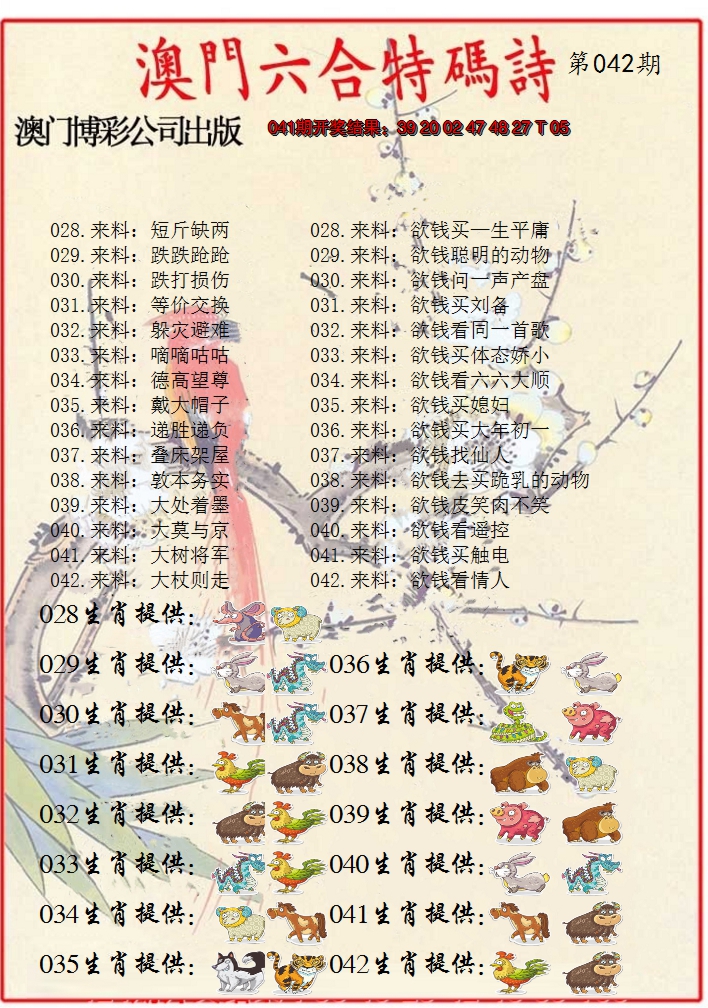 澳門六合特碼詩 第042期
澳门博彩公司出版 041期开奖结果：39 20 02 47 48 27 T 05
028.来料：短斤缺两 028.来料：欲钱买一生平庸
029.来料：跌跌跄跄 029.来料：欲钱聪明的动物
030.来料：跌打损伤 030.来料：欲钱问一声产盘
031.来料：等价交换 031.来料：欲钱买刘备
032.来料：躲灾避难 032.来料：欲钱看同一首歌
033.来料：嘀嘀咕咕 033.来料：欲钱买体态娇小
034.来料：德高望尊 034.来料：欲钱看六六大顺
035.来料：戴大帽子 035.来料：欲钱买媳妇
036.来料：递胜递负 036.来料：欲钱买大年初一
037.来料：叠床架屋 037.来料：欲钱找仙人
038.来料：敦本务实 038.来料：欲钱去买跪乳的动物
039.来料：大处着墨 039.来料：欲钱皮笑肉不笑
040.来料：大莫与京 040.来料：欲钱看遥控
041.来料：大树将军 041.来料：欲钱买触电
042.来料：大杖则走 042.来料：欲钱看情人
028生肖提供：
029生肖提供： 036生肖提供：
030生肖提供： 037生肖提供：
031生肖提供： 038生肖提供：
032生肖提供： 039生肖提供：
033生肖提供： 040生肖提供：
034生肖提供： 041生肖提供：
035生肖提供： 042生肖提供：